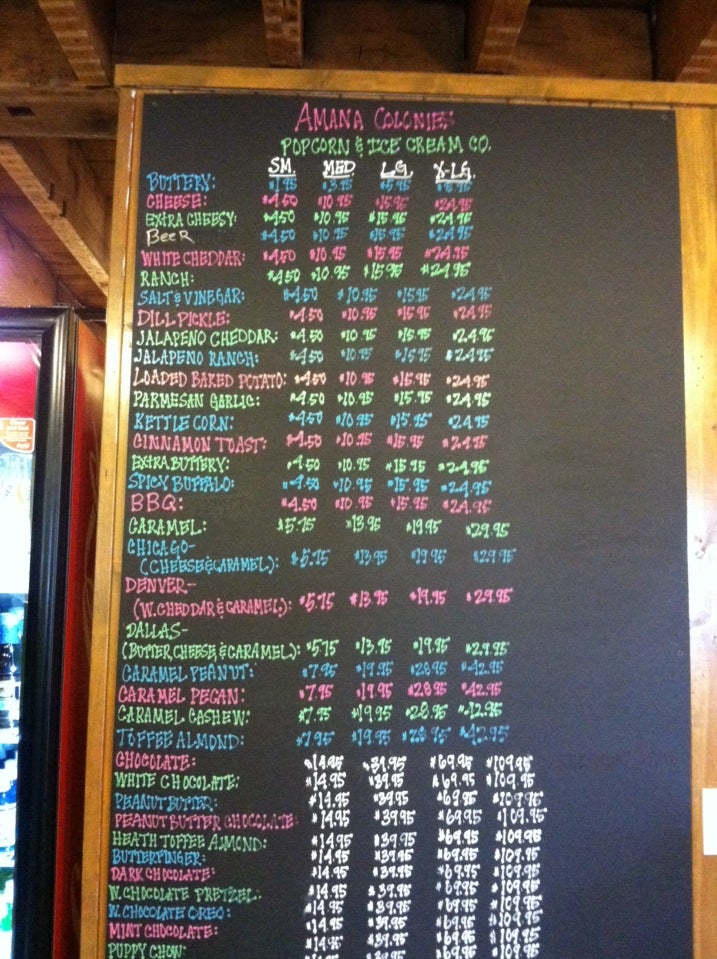 AMANA COLONIES
POPCORN & ICE CREAM CO.
SM. MED. LG. X-LG.
BUTTERY: $1.95 $3.95 $5.95 $8.95
CHEESE: $4.50 $10.95 $15.95 $24.95
EXTRA CHEESY: $4.50 $10.95 $15.95 $24.95
BEER $4.50 $10.95 $15.95 $24.95
WHITE CHEDDAR: $4.50 $10.95 $15.95 $24.95
RANCH: $4.50 $10.95 $15.95 $24.95
SALT & VINEGAR: $4.50 $10.95 $15.95 $24.95
DILL PICKLE: $4.50 $10.95 $15.95 $24.95
JALAPENO CHEDDAR: $4.50 $10.95 $15.95 $24.95
JALAPENO RANCH: $4.50 $10.95 $15.95 $24.95
LOADED BAKED POTATO: $4.50 $10.95 $15.95 $24.95
PARMESAN GARLIC: $4.50 $10.95 $15.95 $24.95
KETTLE CORN: $4.50 $10.95 $15.95 $24.95
CINNAMON TOAST: $4.50 $10.95 $15.95 $24.95
EXTRA BUTTERY: $4.50 $10.95 $15.95 $24.95
SPICY BUFFALO: $4.50 $10.95 $15.95 $24.95
BBQ: $4.50 $10.95 $15.95 $24.95
CARAMEL: $5.75 $13.95 $19.95 $29.95
CHICAGO-
(CHEESE & CARAMEL): $5.75 $13.95 $19.95 $29.95
DENVER-
(W. CHEDDAR & CARAMEL): $5.75 $13.95 $19.95 $29.95
DALLAS-
(BUTTER, CHEESE, & CARAMEL): $5.75 $13.95 $19.95 $29.95
CARAMEL PEANUT: $7.95 $19.95 $28.95 $42.95
CARAMEL PECAN: $7.95 $19.95 $28.95 $42.95
CARAMEL CASHEW: $7.95 $19.95 $28.95 $42.95
TOFFEE ALMOND: $7.95 $19.95 $28.95 $42.95
CHOCOLATE: $14.95 $39.95 $69.95 $109.95
WHITE CHOCOLATE: $14.95 $39.95 $69.95 $109.95
PEANUT BUTTER: $14.95 $39.95 $69.95 $109.95
PEANUT BUTTER CHOCOLATE: $14.95 $39.95 $69.95 $109.95
HEATH TOFFEE ALMOND: $14.95 $39.95 $69.95 $109.95
BUTTERFINGER: $14.95 $39.95 $69.95 $109.95
DARK CHOCOLATE: $14.95 $39.95 $69.95 $109.95
W. CHOCOLATE PRETZEL: $14.95 $39.95 $69.95 $109.95
W. CHOCOLATE OREO: $14.95 $39.95 $69.95 $109.95
MINT CHOCOLATE: $14.95 $39.95 $69.95 $109.95
PUPPY CHOW: $14.95 $39.95 $69.95 $109.95